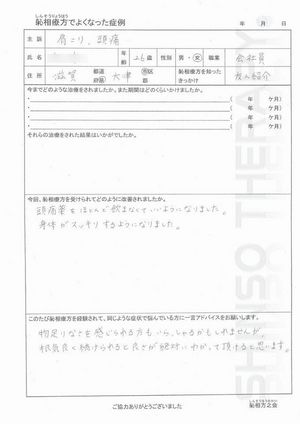 しんそうりょうほう
恥相療方でよくなった症例
年 月 日
主訴 肩こり、頭痛
氏名 年齢 26歳 性別 男・女 職業 会社員
住所 滋賀 都道府県 大津 市区郡 恥相療方を知ったきっかけ 友人紹介
今までどのような治療をされましたか。また期間はどのくらいかけましたか。
・ ( 年 ケ月)
・ ( 年 ケ月)
・ ( 年 ケ月)
それらの治療をされた結果はいかがでしたか。
今回、恥相療方を受けられてどのように改善されましたか。
頭痛薬をほとんど飲まなくていいようになりました。
身体がスッキリするようになりました。
このたび恥相療方を経験されて、同じような症状で悩んでいる方に一言アドバイスをお願いします。
物足りなさを感じられる方もいらっしゃるかもしれませんが、
根気良く続けられると良さが絶対にわかって頂けると思います。
ご協力ありがとうございました
恥相方之会
SHINSO THERAPY